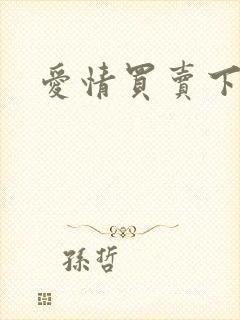 愛情買賣下
孫哲